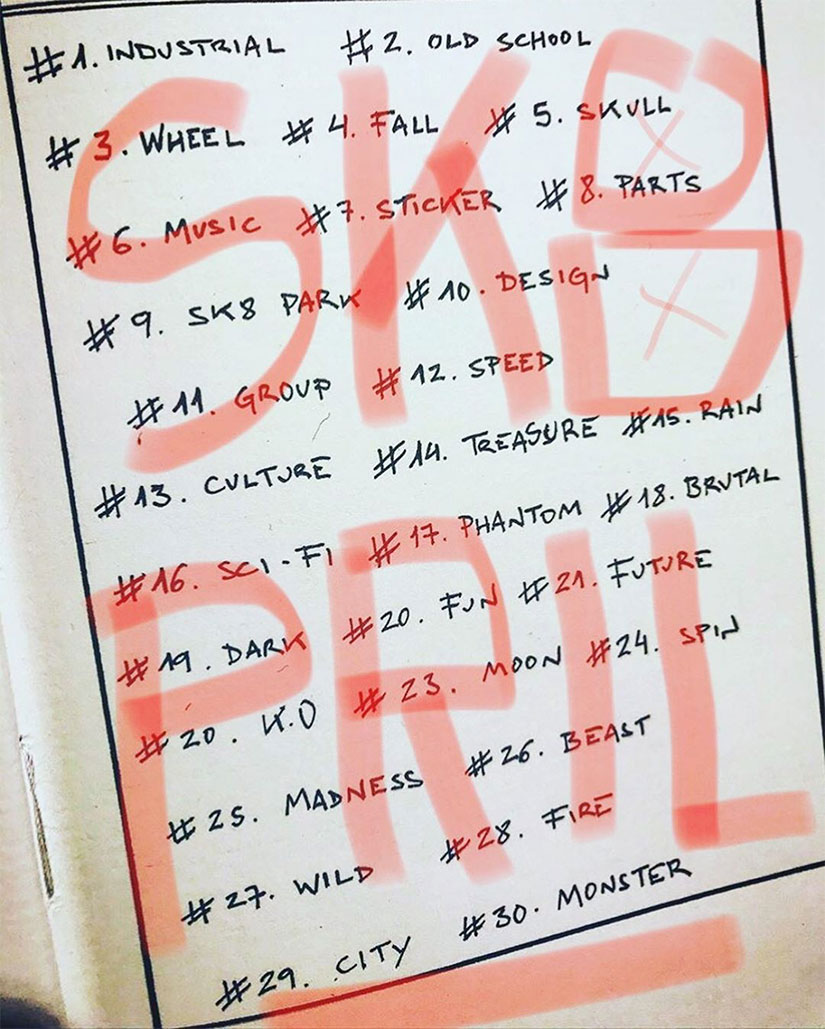 #1. INDUSTRIAL #2. OLD SCHOOL
#3. WHEEL #4. FALL #5. SKULL
#6. MUSIC #7. STICKER #8. PARTS
#9. SK8 PARK #10. DESIGN
#11. GROUP #12. SPEED
#13. CULTURE #14. TREASURE #15. RAIN
#16. SCI-FI #17. PHANTOM #18. BRUTAL
#19. DARK #20. FUN #21. FUTURE
#20. K.O #23. MOON #24. SPIN
#25. MADNESS #26. BEAST
#27. WILD #28. FIRE
#29. CITY #30. MONSTER
SK8
PRIL